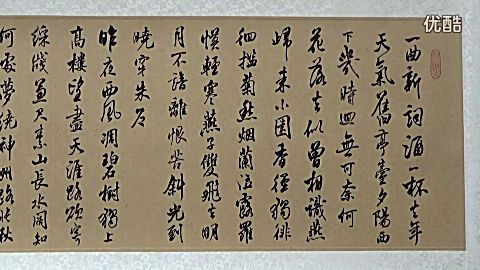 一曲新詞酒一杯去年
天氣舊亭臺夕陽西
下幾時迴無可奈何
花落去似曾相識燕
歸來小園香徑獨徘
徊檻菊愁烟蘭泣露羅
幙輕寒燕子雙飛去明
月不諳離恨苦斜光到
曉穿朱户
昨夜西風凋碧樹獨上
高樓望盡天涯路欲寄
綵牋兼尺素山長水闊知
何處夢繞神州路悵秋
优酷